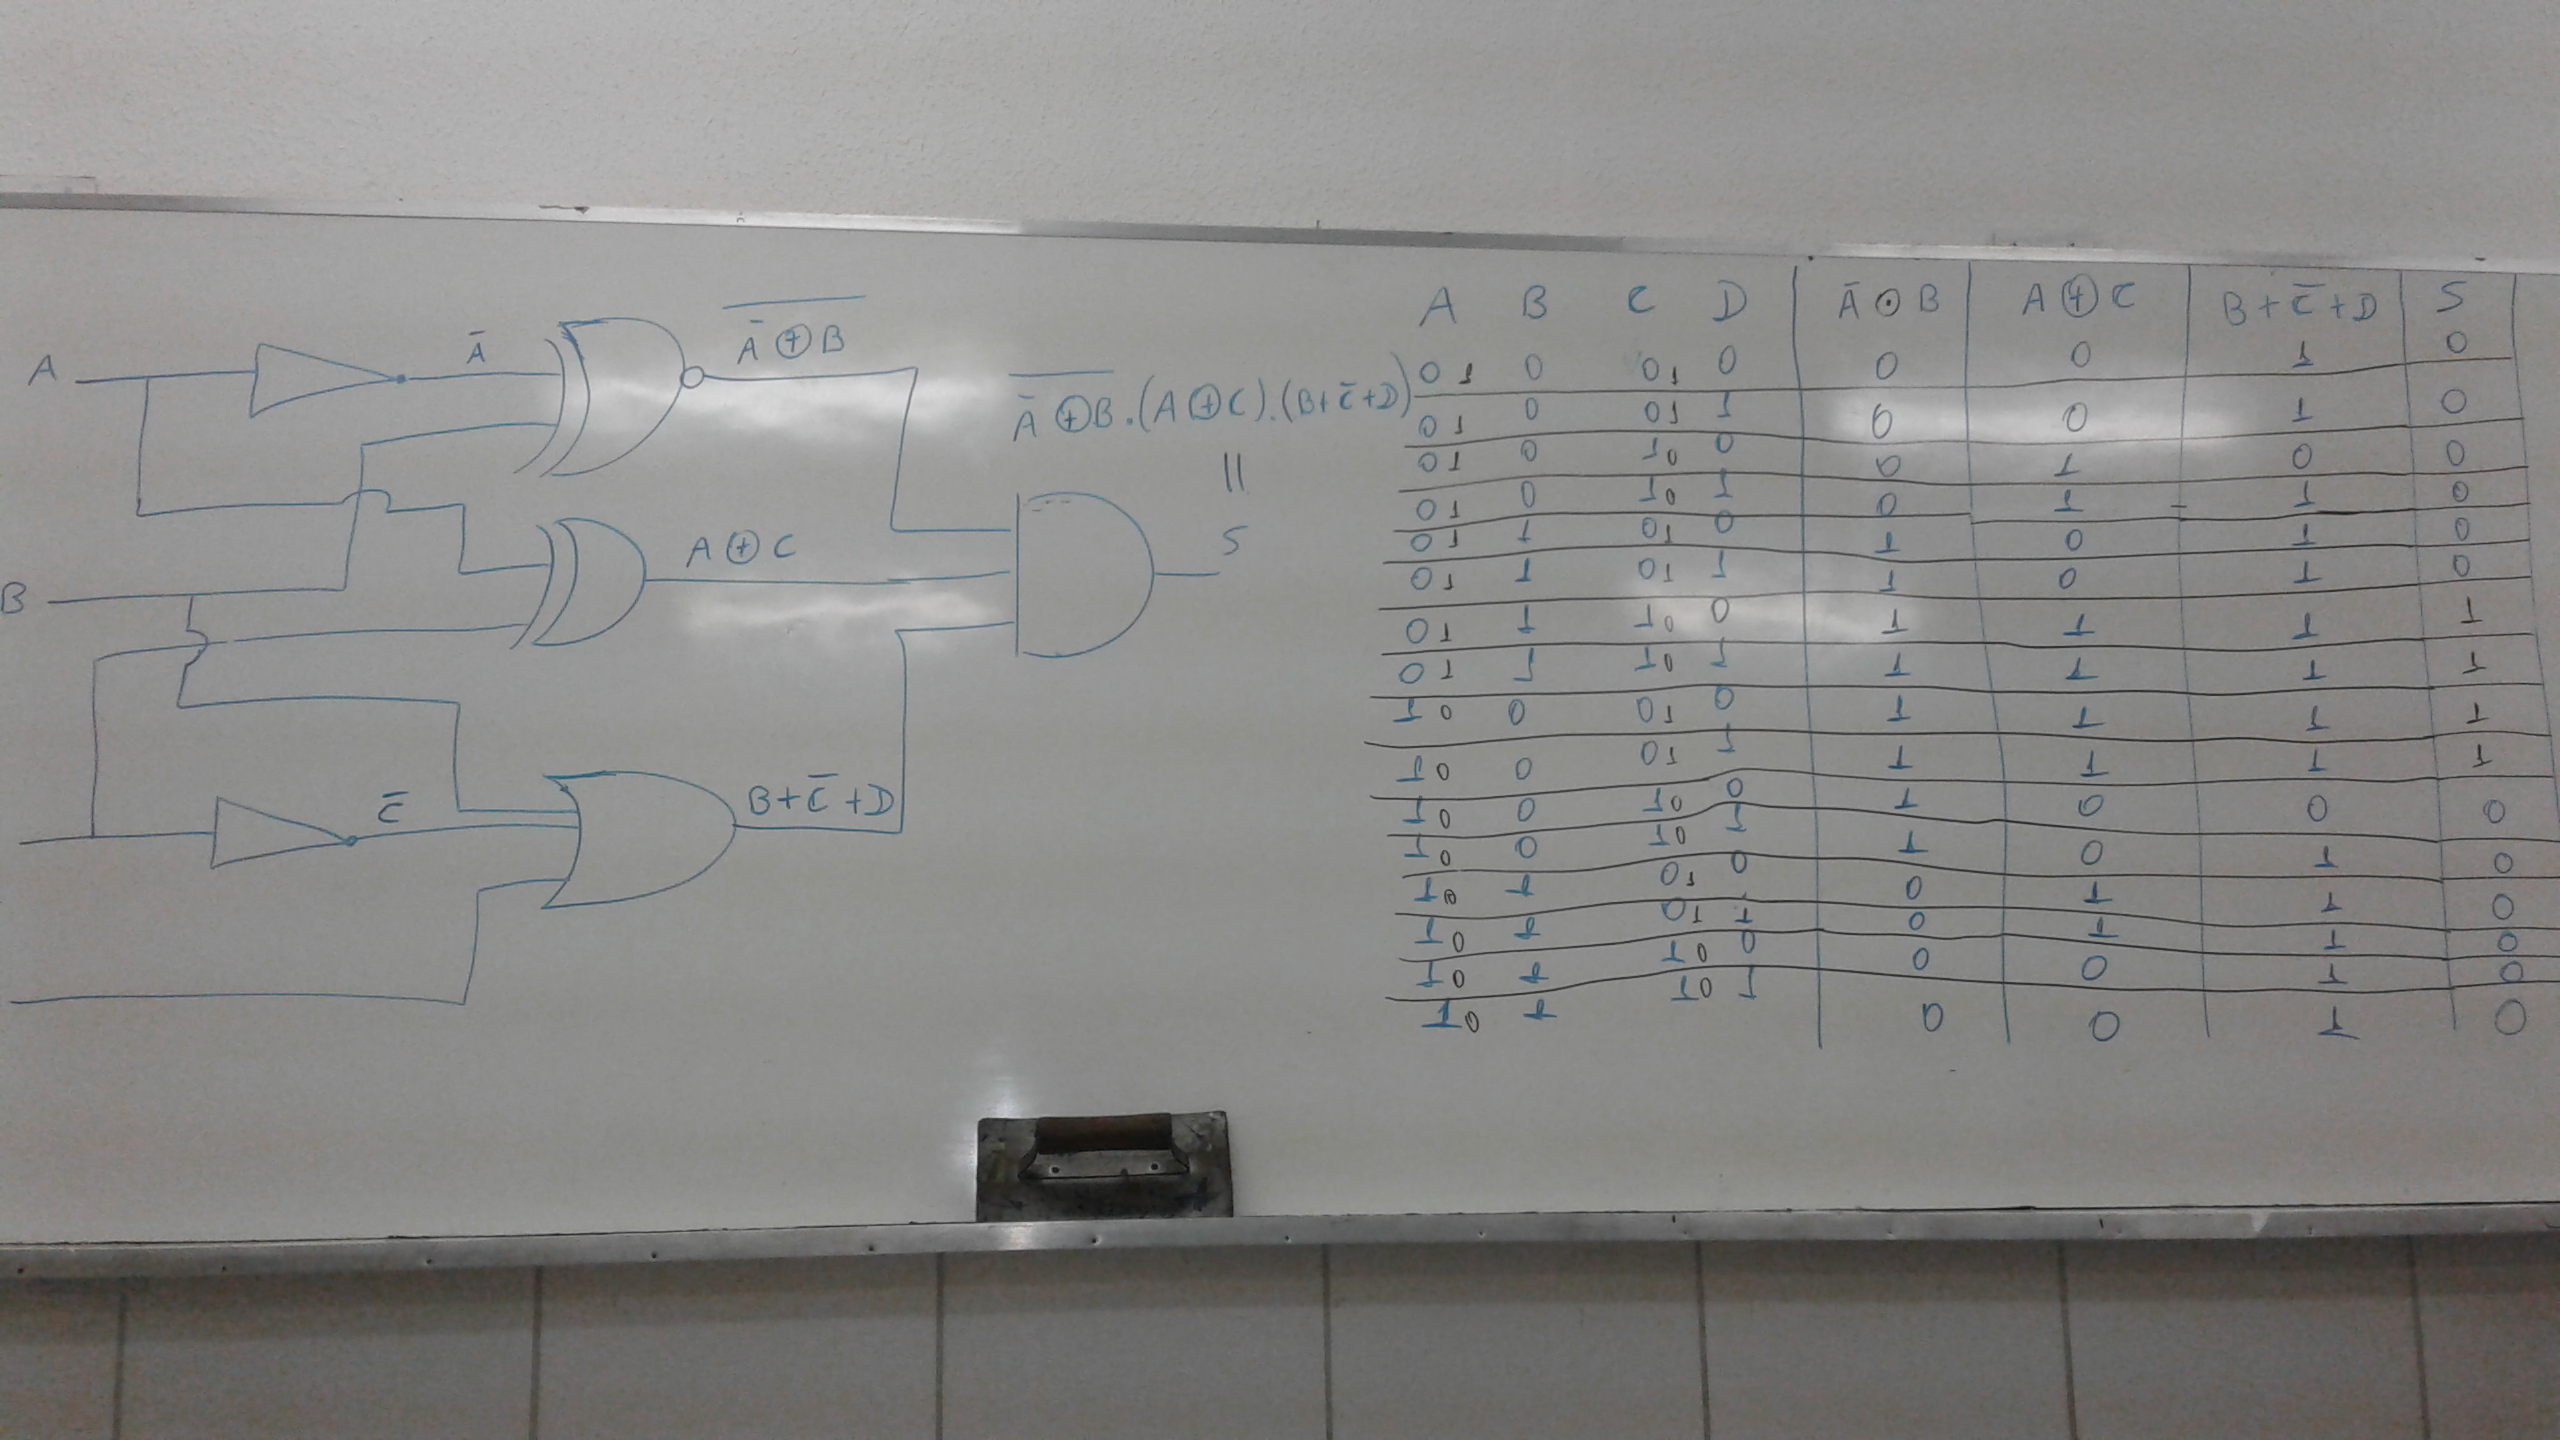 A
Ā
Ā ⊕ B (overline)
B
A ⊕ C
C̄
B + C̄ + D
Ā ⊕ B (overline) . (A ⊕ C) . (B + C̄ + D)
||
S
A B C D | Ā ⊙ B | A ⊕ C | B + C̄ + D | S
0 1 0 0 1 0 0 0 1 0
0 1 0 0 1 1 0 0 1 0
0 1 0 1 0 0 0 1 0 0
0 1 0 1 0 1 0 1 1 0
0 1 1 0 1 0 1 0 1 0
0 1 1 0 1 1 1 0 1 0
0 1 1 1 0 0 1 1 1 1
0 1 1 1 0 1 1 1 1 1
1 0 0 0 1 0 1 1 1 1
1 0 0 0 1 1 1 1 1 1
1 0 0 1 0 0 1 0 0 0
1 0 0 1 0 1 1 0 1 0
1 0 1 0 1 0 0 1 1 0
1 0 1 0 1 1 0 1 1 0
1 0 1 1 0 0 0 0 1 0
1 0 1 1 0 1 0 0 1 0